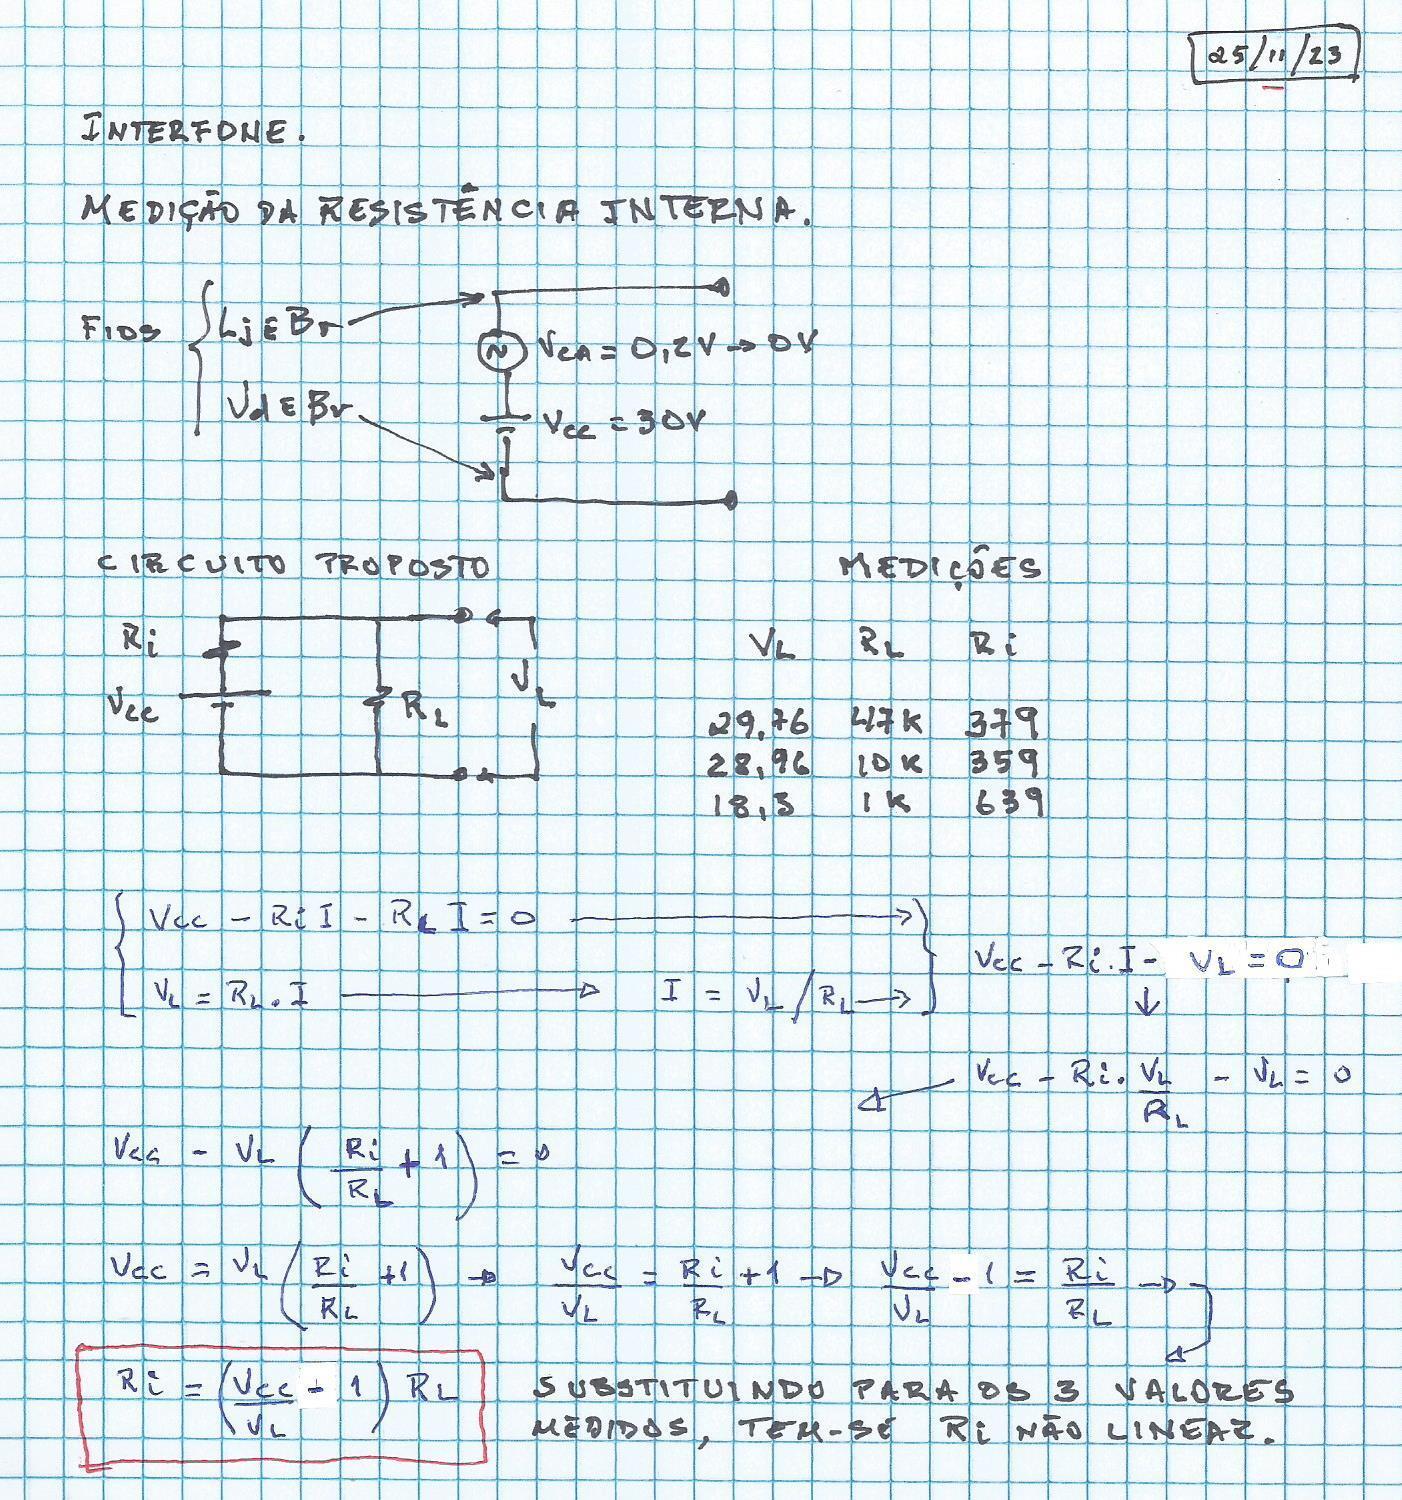 25/11/23
INTERFONE.
MEDIÇÃO DA RESISTÊNCIA INTERNA.
FIOS { Lj E Br
Vd E Br
VCA = 0,2V → 0V
VCC = 30V
CIRCUITO PROPOSTO
Ri
VCC
RL
VL
MEDIÇÕES
VL RL Ri
29,76 47K 379
28,96 10K 359
18,3 1K 639
VCC - Ri I - RL I = 0
VL = RL . I → I = VL / RL →
VCC - Ri . I - VL = 0
↓
VCC - Ri . VL/RL - VL = 0
VCC - VL (Ri/RL + 1) = 0
VCC = VL (Ri/RL + 1) → VCC/VL = Ri/RL + 1 → VCC/VL - 1 = Ri/RL →
Ri = (VCC/VL - 1) RL
SUBSTITUINDO PARA OS 3 VALORES
MEDIDOS, TEM-SE Ri NÃO LINEAR.